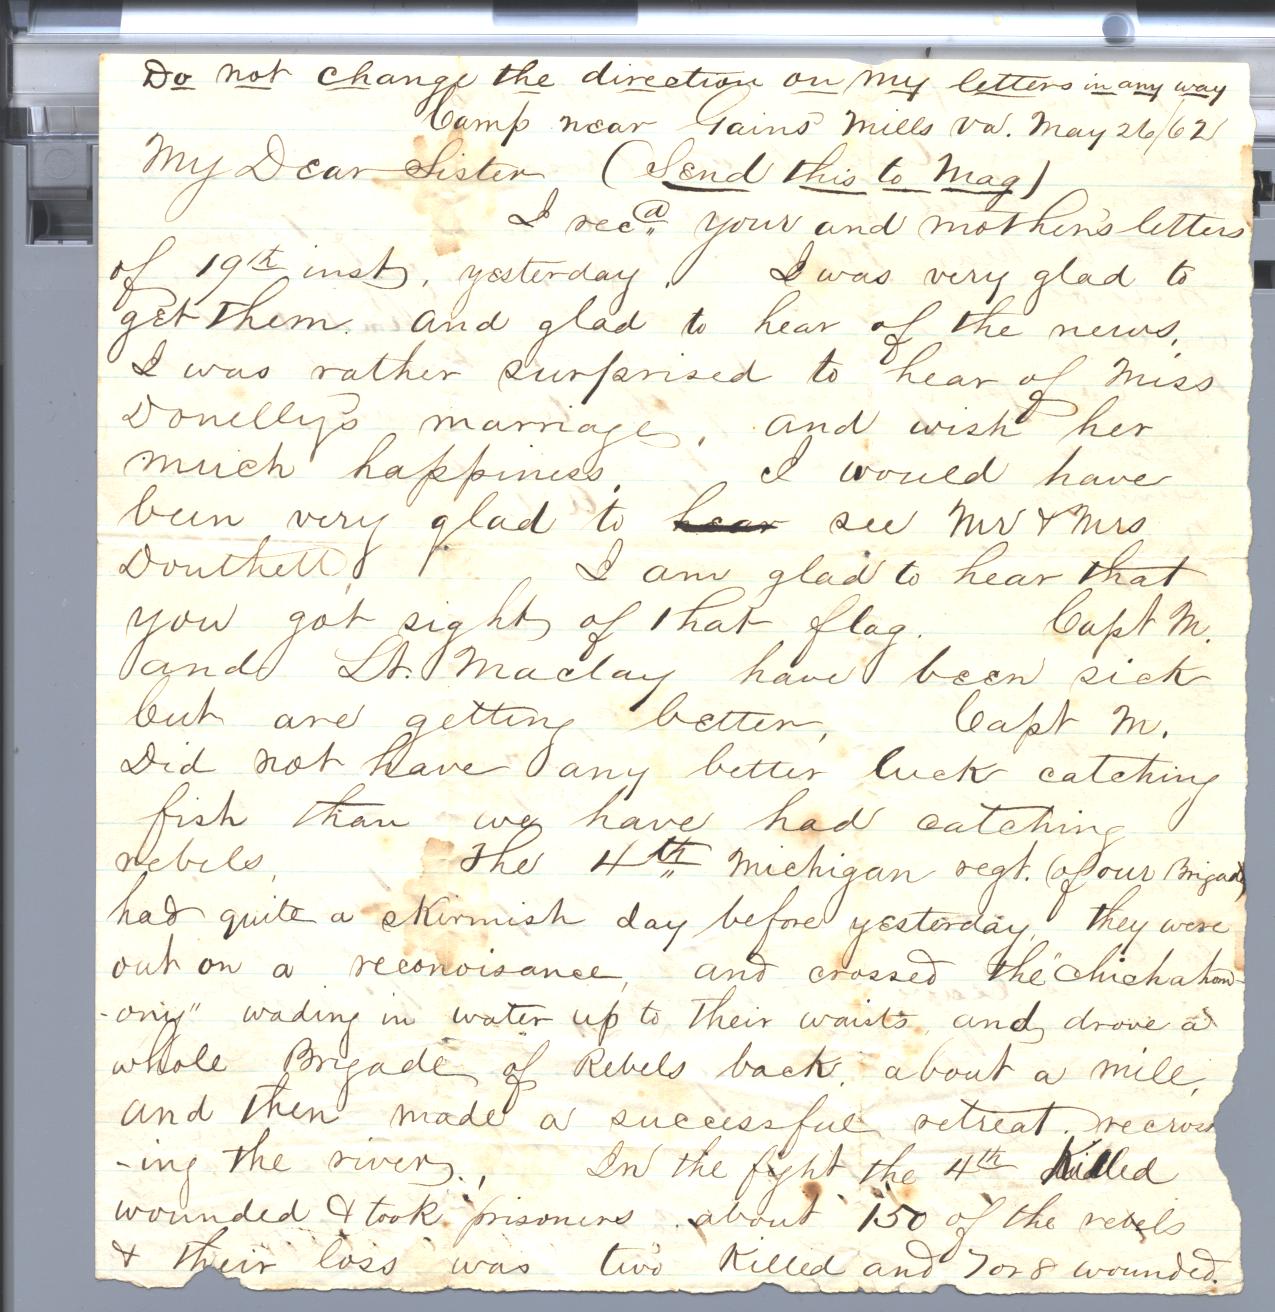 Do not change the direction on my letters in any way
Camp near Gains Mills Va. May 26/62
My Dear Sister (Send this to Mag)
I recd your and mother's letters
of 19th inst, yesterday. I was very glad to
get them. and glad to hear of the news.
I was rather surprised to hear of Miss
Donelly's marriage, and wish her
much happiness. I would have
been very glad to hear see Mr & Mrs
Douthett. I am glad to hear that
you got sight of that flag. Capt M.
and Lt. Maclay have been sick
but are getting better, Capt M.
Did not have any better luck catching
fish than we have had catching
rebels. The 4th Michigan regt. (of our Brigade)
had quite a skirmish day before yesterday, they were
out on a reconoisance, and crossed the "Chickahom-
-ony" wading in water up to their waists, and drove a
whole Brigade of Rebels back, about a mile,
and then made a successful retreat, recross
-ing the river, In the fight the 4th Killed
wounded & took prisoners about 150 of the rebels
& their loss was two Killed and 7 or 8 wounded.